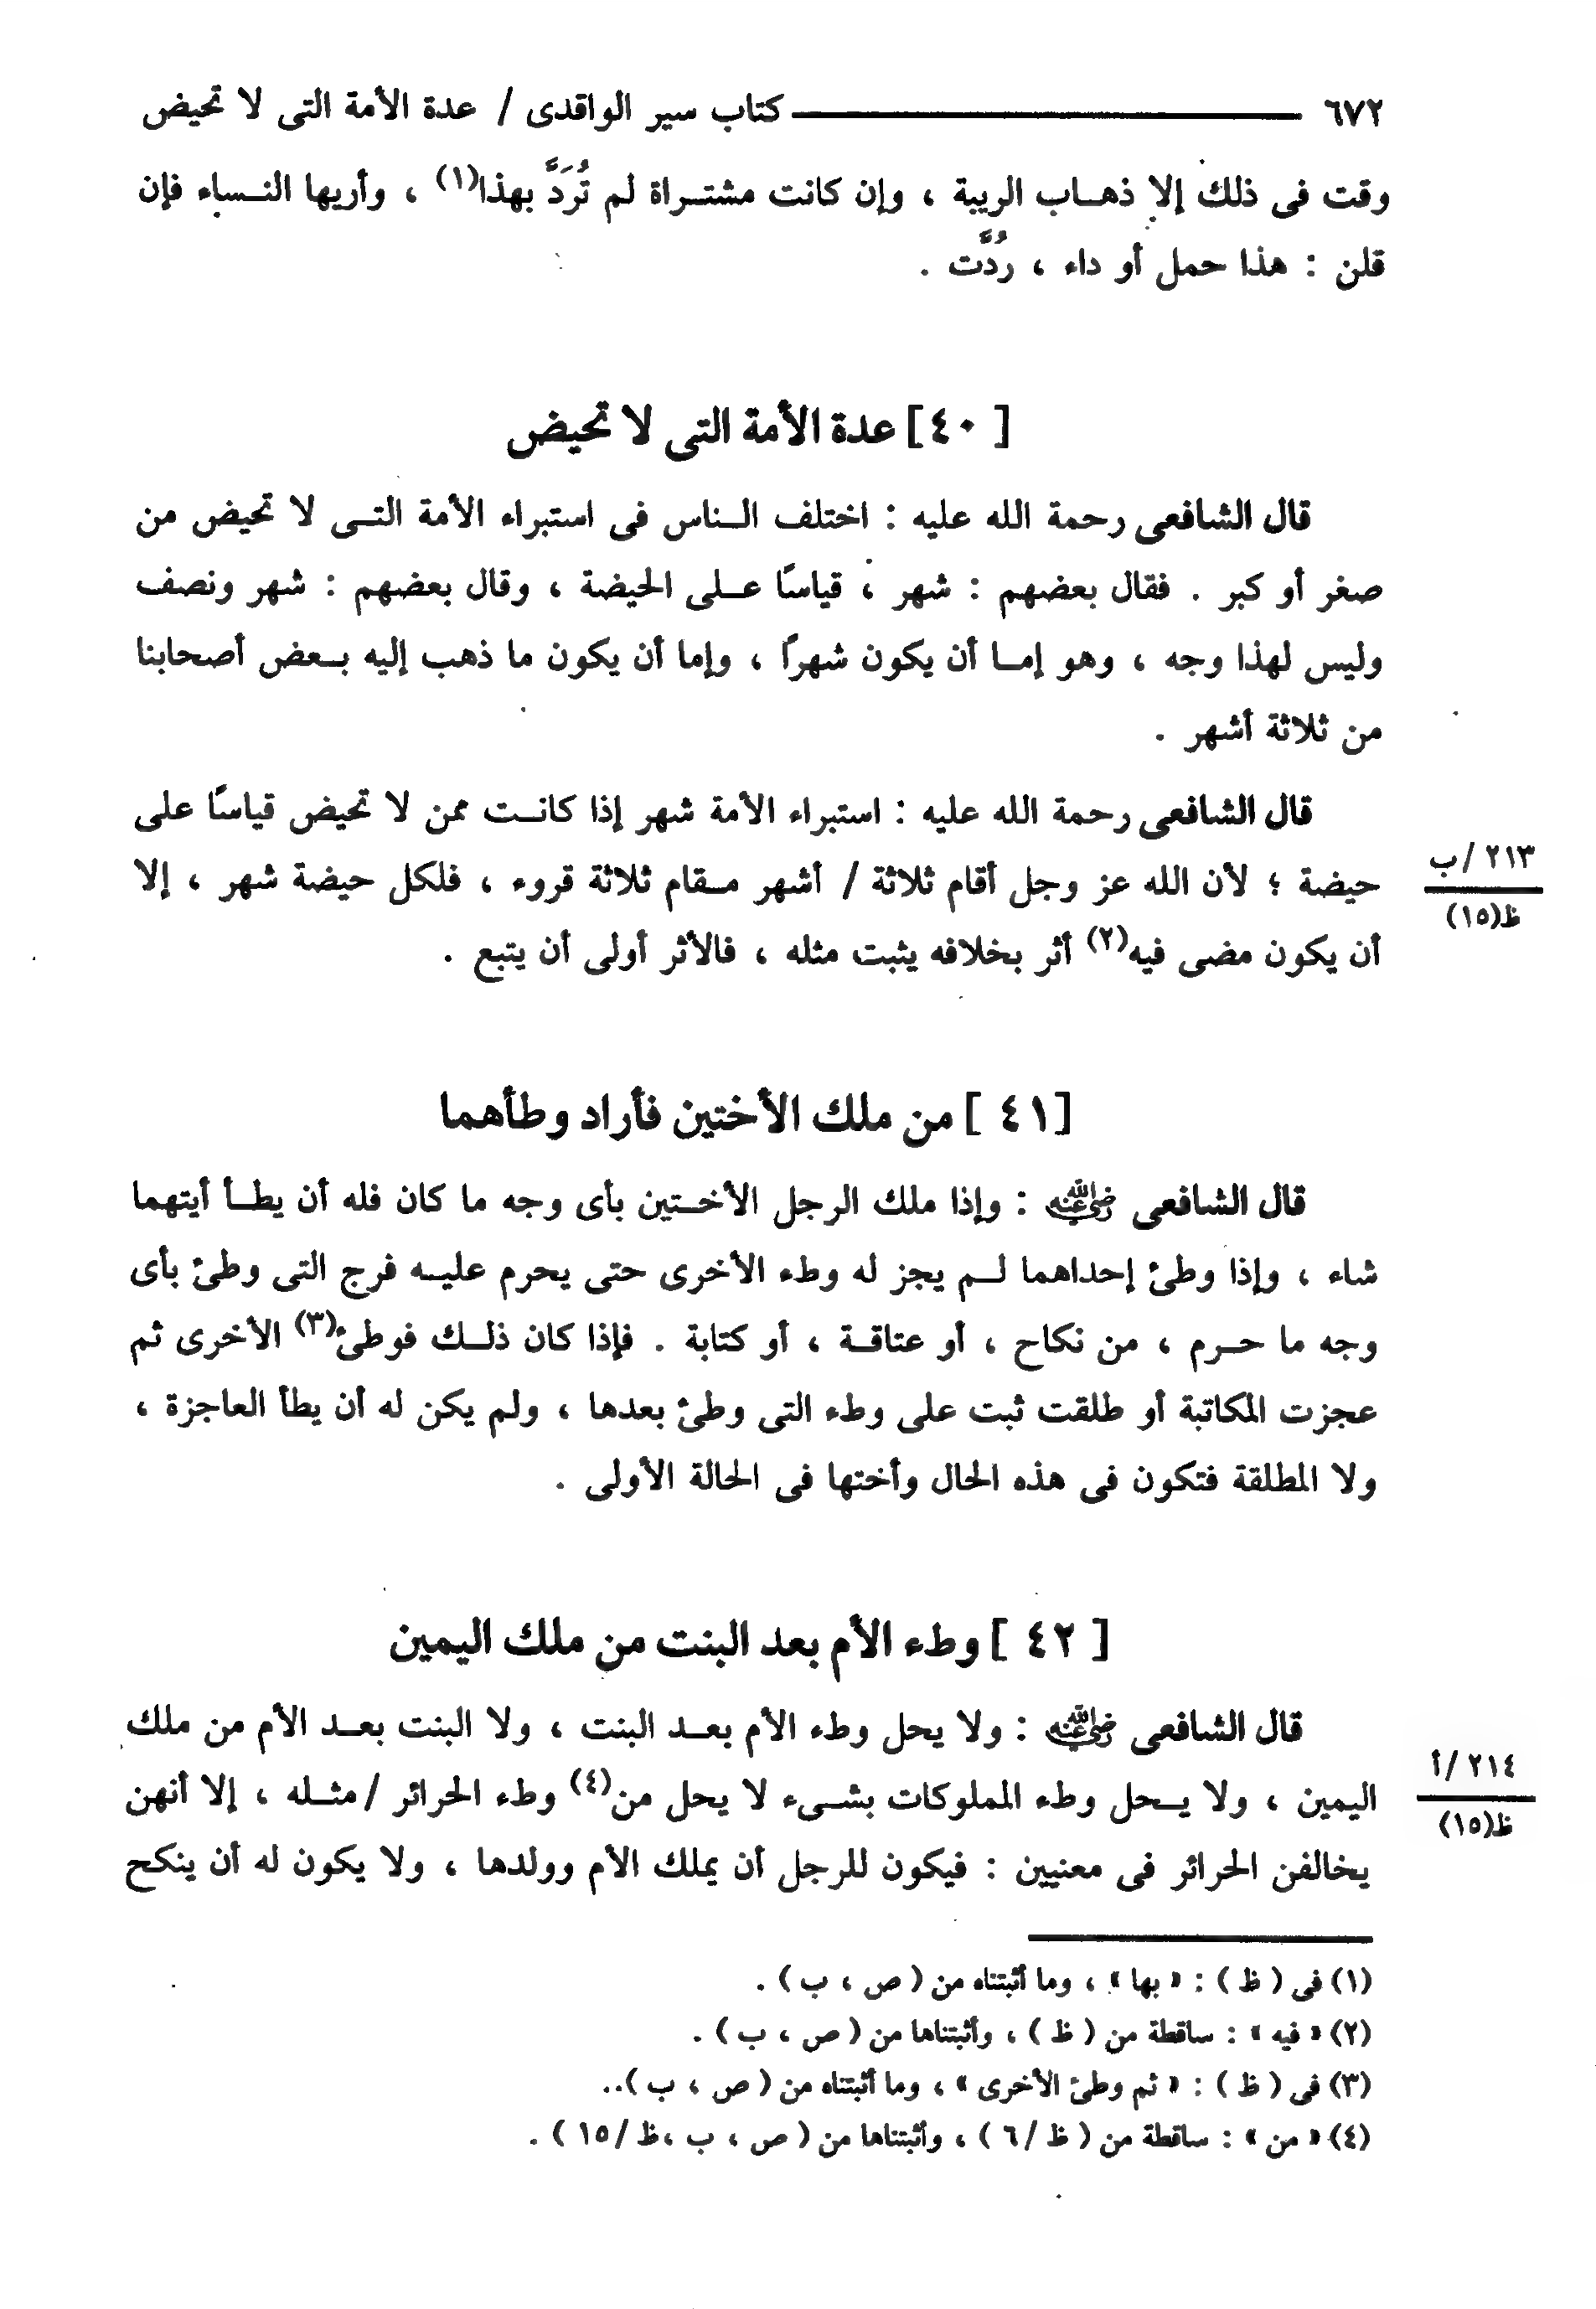 ٦٧٢ ــــــ كتاب سير الواقدى / عدة الأمة التى لا تحيض
وقت فى ذلك إلا ذهاب الريبة ، وإن كانت مشتراة لم تُرَدَّ بهذا(١) ، وأريها النساء فإن
قلن : هذا حمل أو داء ، رُدَّت .
[ ٤٠] عدة الأمة التى لا تحيض
قال الشافعى رحمة الله عليه : اختلف الناس فى استبراء الأمة التى لا تحيض من
صغر أو كبر . فقال بعضهم : شهر ، قياسًا على الحيضة ، وقال بعضهم : شهر ونصف
وليس لهذا وجه ، وهو إما أن يكون شهرًا ، وإما أن يكون ما ذهب إليه بعض أصحابنا
من ثلاثة أشهر .
قال الشافعى رحمة الله عليه : استبراء الأمة شهر إذا كانت ممن لا تحيض قياسًا على
٢١٣ /ب
ظ(١٥)
حيضة ؛ لأن الله عز وجل أقام ثلاثة / أشهر مقام ثلاثة قروء ، فلكل حيضة شهر ، إلا
أن يكون مضى فيه(٢) أثر بخلافه يثبت مثله ، فالأثر أولى أن يتبع .
[٤١ ] من ملك الأختين فأراد وطأهما
قال الشافعى رضي الله عنه : وإذا ملك الرجل الأختين بأى وجه ما كان فله أن يطأ أيتهما
شاء ، وإذا وطئ إحداهما لم يجز له وطء الأخرى حتى يحرم عليه فرج التى وطئ بأى
وجه ما حرم ، من نكاح ، أو عتاقة ، أو كتابة . فإذا كان ذلك فوطئ(٣) الأخرى ثم
عجزت المكاتبة أو طلقت ثبت على وطء التى وطئ بعدها ، ولم يكن له أن يطأ العاجزة ،
ولا المطلقة فتكون فى هذه الحال وأختها فى الحالة الأولى .
[ ٤٢ ] وطء الأم بعد البنت من ملك اليمين
قال الشافعى رضي الله عنه : ولا يحل وطء الأم بعد البنت ، ولا البنت بعد الأم من ملك
٢١٤ /أ
ظ(١٥)
اليمين ، ولا يحل وطء المملوكات بشىء لا يحل من(٤) وطء الحرائر /مثله ، إلا أنهن
يخالفن الحرائر فى معنيين : فيكون للرجل أن يملك الأم وولدها ، ولا يكون له أن ينكح
(١) فى ( ظ ) : « بها » ، وما أثبتناه من ( ص ، ب ) .
(٢) « فيه » : ساقطة من ( ظ ) ، وأثبتناها من ( ص ، ب ) .
(٣) فى ( ظ ) : « ثم وطئ الأخرى » ، وما أثبتناه من ( ص ، ب )..
(٤) « من » : ساقطة من ( ظ /٦ ) ، وأثبتناها من ( ص ، ب ،ظ /١٥ ) .